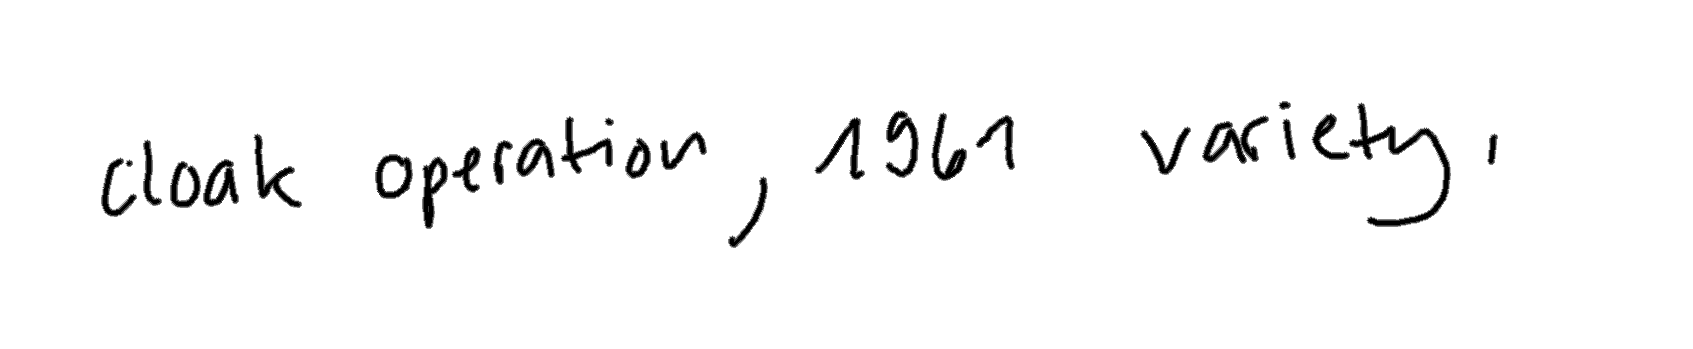 cloak operation, 1961 variety,